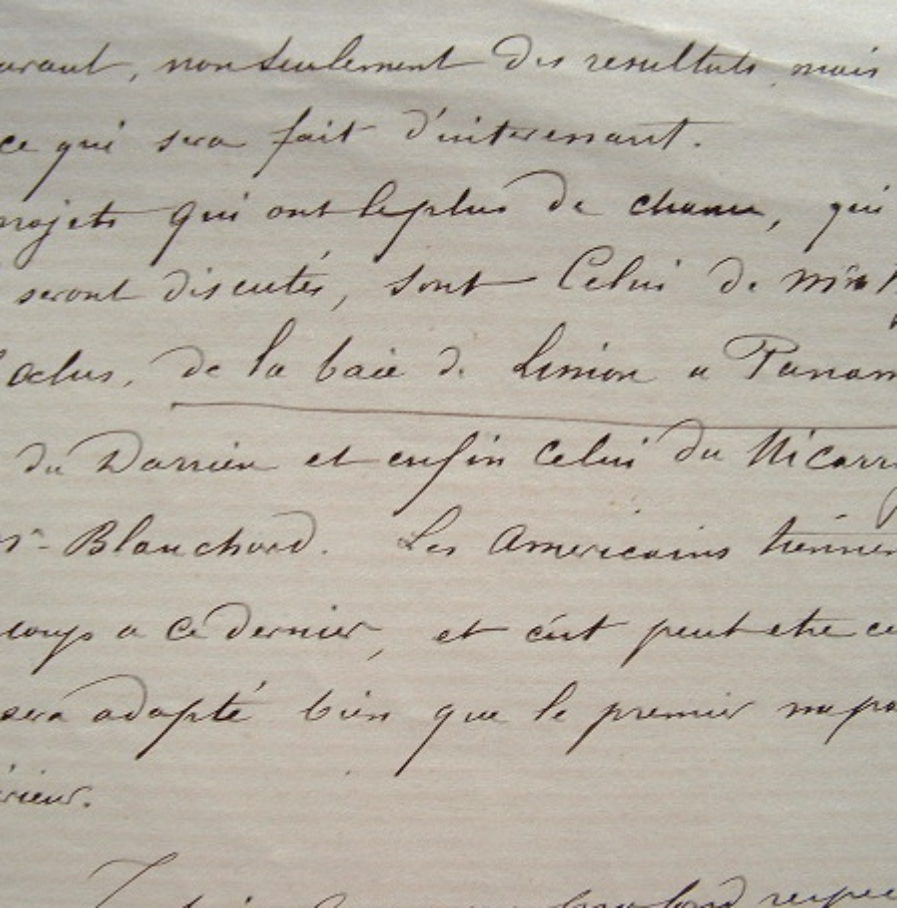 courant, non seulement des resultats, mais
ce qui sera fait d'interessant.
projets qui ont le plus de chance, qui
seront discutés, sont Celui de
de la baie de Limion a Panam
du Darrien et enfin Celui du Nicarra
Blanchard. Les Americains tiennen
a ce dernier, et c'est peut etre ce
sera adopté bien que le premier me pa
érieur.